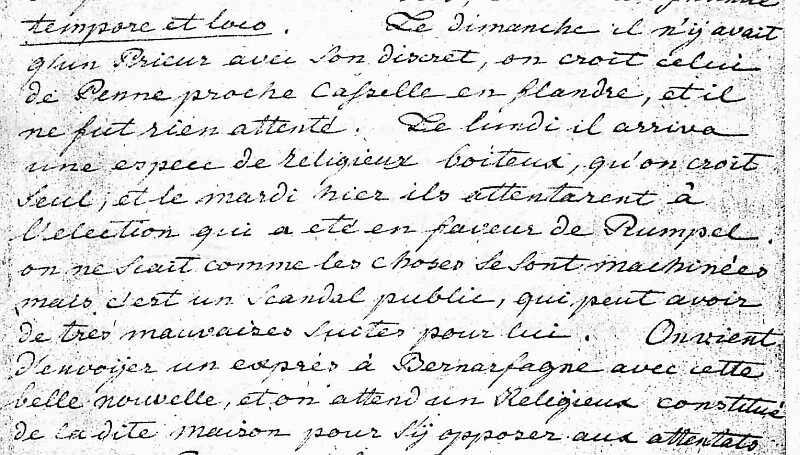 tempore et loco. Le dimanche il n'ij avait
qu'un Prieur avec son discret, on croit celui
de Penne proche Casselle en flandre, et il
ne fut rien attenté. Le lundi il arriva
une espece de religieux boiteux, qu'on croit
seul, et le mardi hier ils attentarent à
l'election qui a eté en faveur de Rumpel.
on ne scait comme les choses se sont machinées
mais c'est un scandal public, qui peut avoir
de tres mauvaises suites pour lui. On vient
d'envoijer un exprés à Bernarfagne avec cette
belle nouvelle, et on attend un Religieux constitué
de la dite maison pour s'ij opposer aux attentats